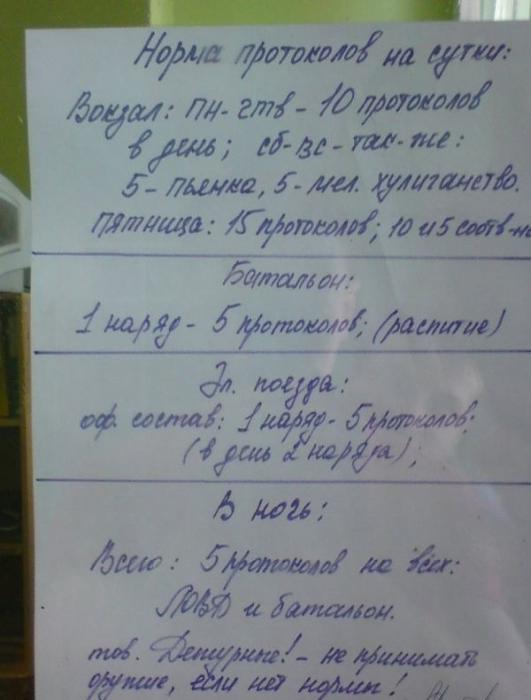 Норма протоколов на сутки:
Вокзал: пн-чтв - 10 протоколов
в день; сб-вс - так-же:
5 - пьянка, 5 - мел. хулиганство.
Пятница: 15 протоколов; 10 и 5 соотв-но
Батальон:
1 наряд - 5 протоколов; (распитие)
Эл. поезда:
оф. состав: 1 наряд - 5 протоколов;
(в день 2 наряда);
В ночь:
Всего: 5 протоколов на всех:
ЛОВД и батальон.
тов. Дежурные! - не принимать
оружие, если нет нормы!